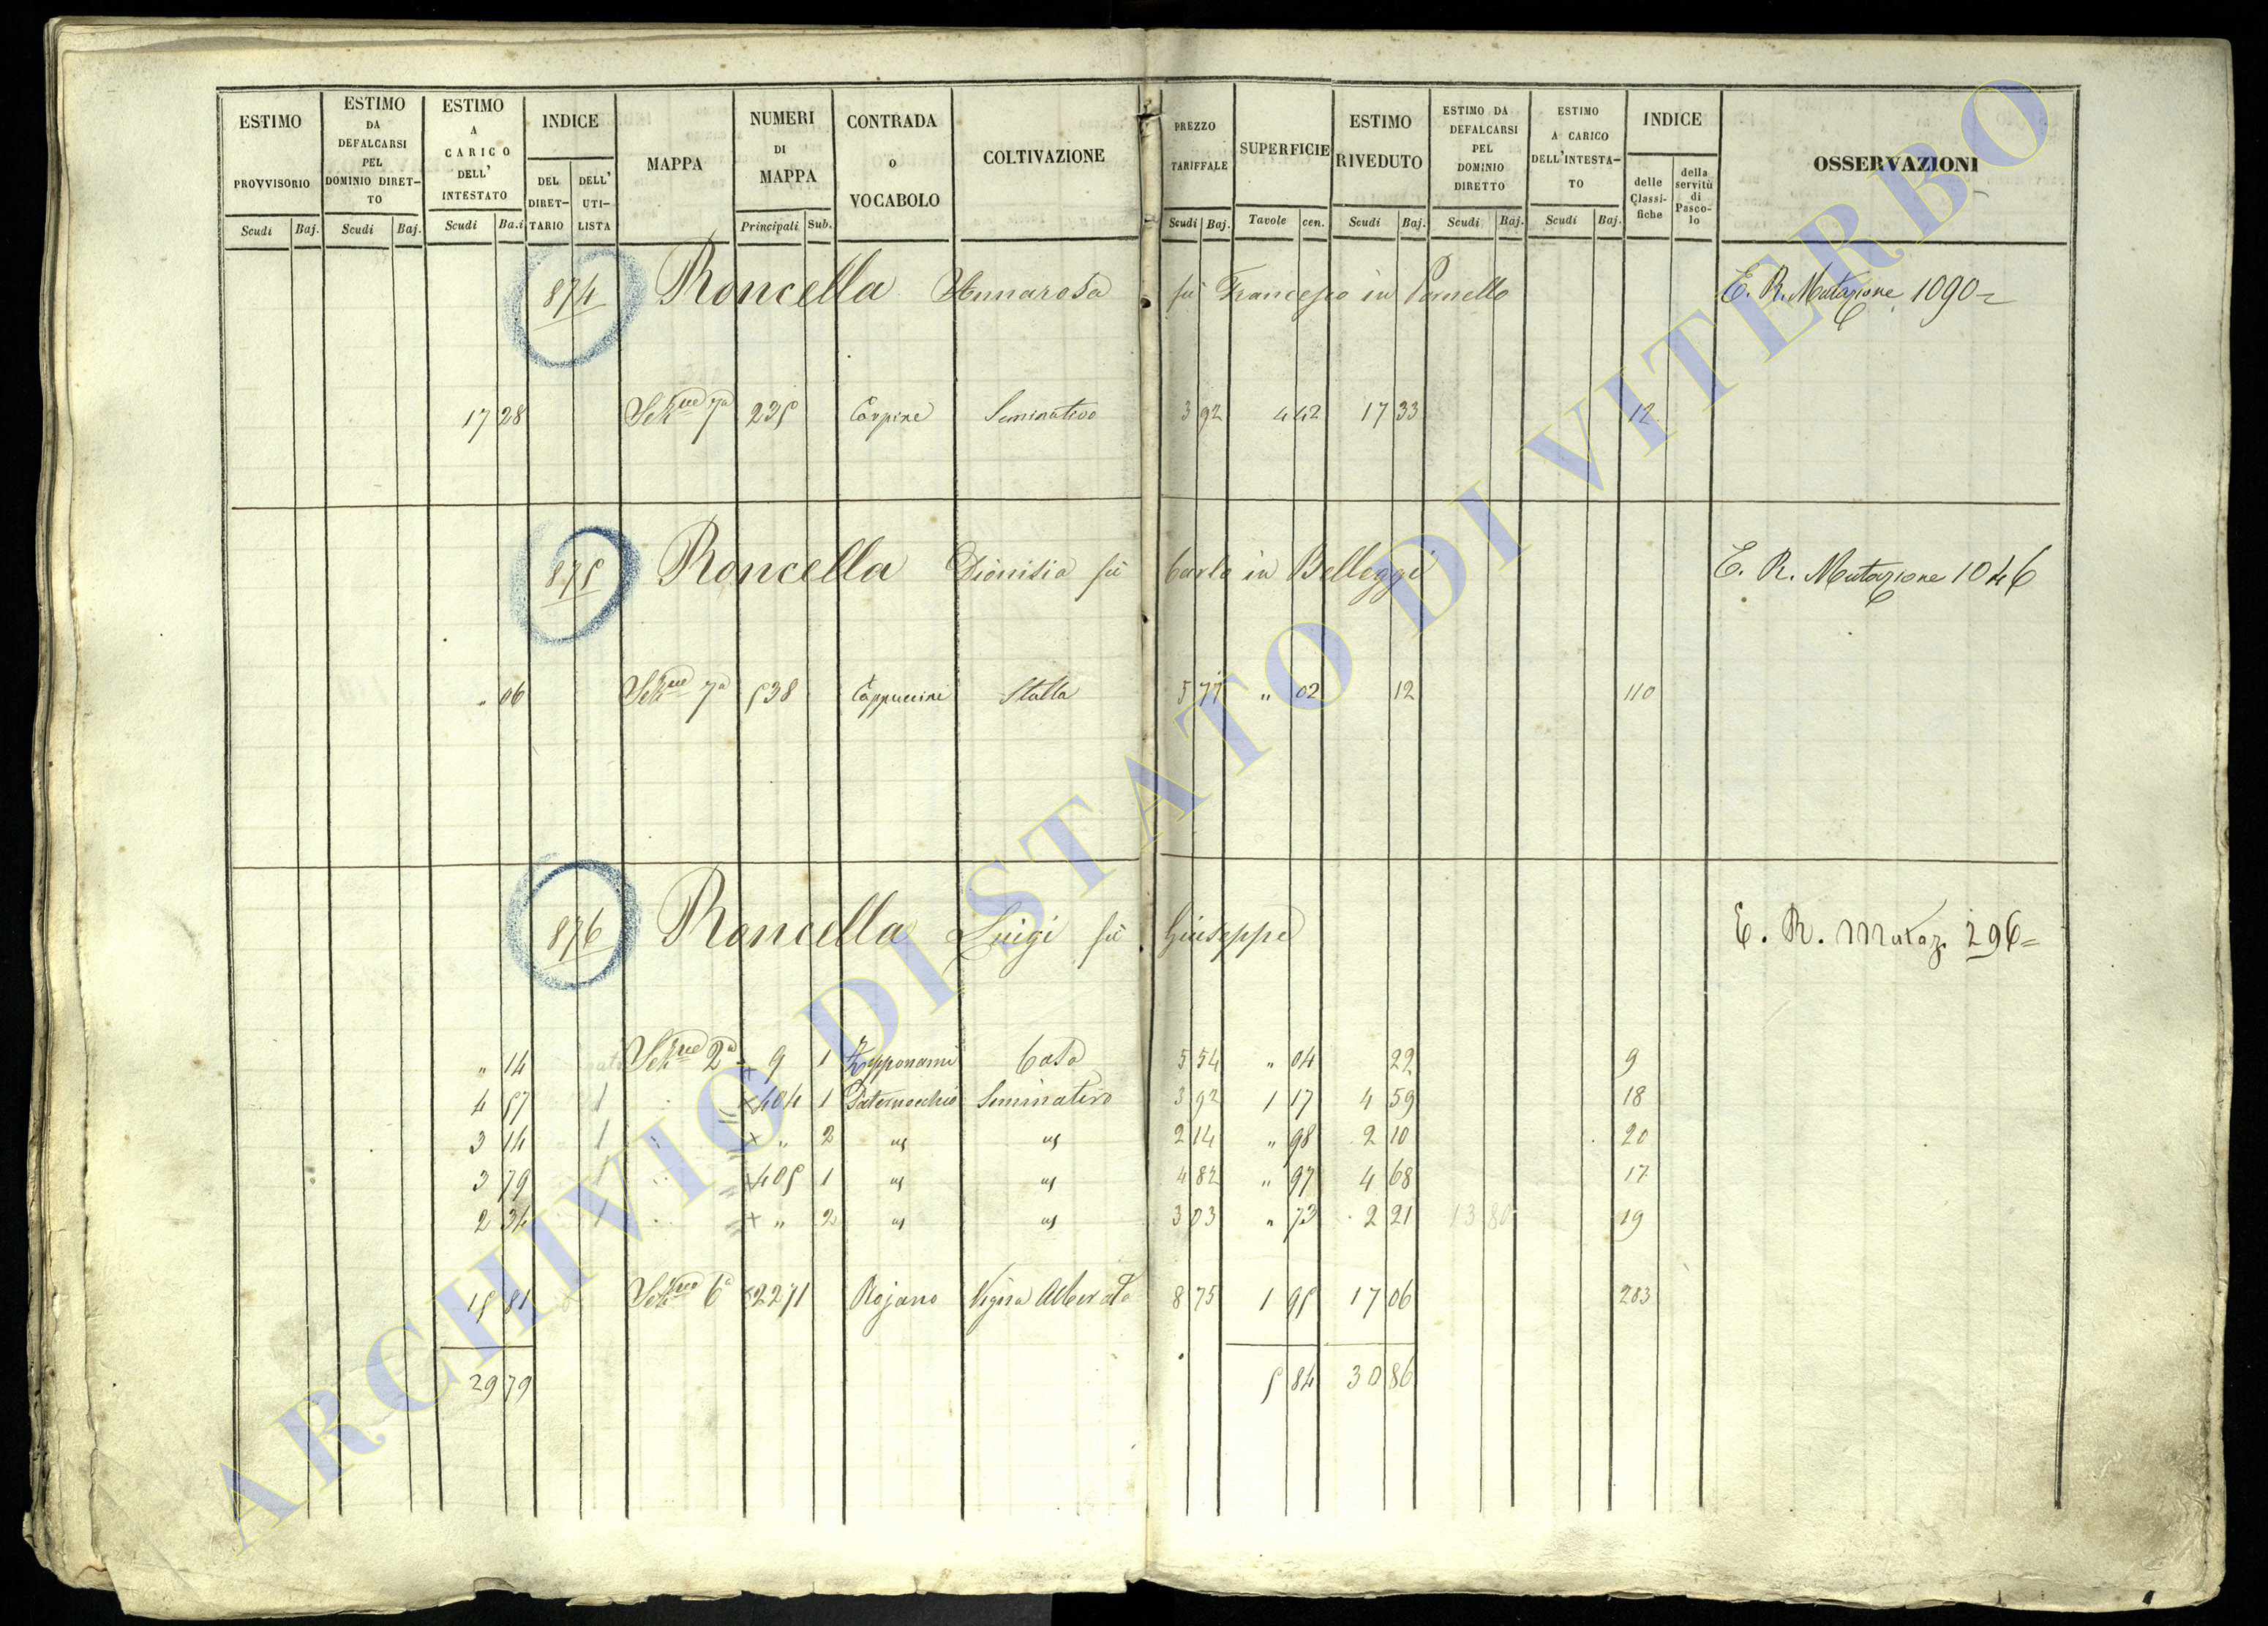 ESTIMO PROVVISORIO
ESTIMO DA DEFALCARSI PEL DOMINIO DIRET-TO
ESTIMO A CARICO DELL' INTESTATO
INDICE
DEL DIRET-TARIO
DELL' UTI-LISTA
MAPPA
NUMERI DI MAPPA
CONTRADA o VOCABOLO
COLTIVAZIONE
PREZZO TARIFFALE
SUPERFICIE
ESTIMO RIVEDUTO
ESTIMO DA DEFALCARSI PEL DOMINIO DIRETTO
ESTIMO A CARICO DELL'INTESTA-TO
INDICE
delle Classi-fiche
della servitù di Pasco-lo
OSSERVAZIONI
Scudi Baj. Scudi Baj. Scudi Ba.i Principali Sub. Scudi Baj. Tavole cen. Scudi Baj. Scudi Baj. Scudi Baj.
874 Roncella Annarosa fù Francesco in E. R. Mutazione 1090
17 28 Sez.ne 7a 235 Carpine Seminativo 3 92 4 42 17 33 12
875 Roncella Dionisia fù Carlo in Belleggi E. R. Mutazione 1046
" 06 Sez.ne 7a 538 Cappuccini Stalla 5 77 " 02 12 110
876 Roncella Luigi fù Giuseppe E. R. Mutaz. 296
" 14 Sez.ne 2a 9 1 Casa 5 54 " 04 22 9
4 57 1 404 1 Paternocchio Seminativo 3 92 1 17 4 59 18
3 14 1 " 2 us us 2 14 " 98 2 10 20
3 79 1 405 1 us us 4 82 " 97 4 68 17
2 34 1 " 2 us us 3 03 " 73 2 21 13 80 19
15 81 Sez.ne 6a 2271 Rojano Vigna Alberata 8 75 1 95 17 06 203
29 79 5 84 30 86
ARCHIVIO DI STATO DI VITERBO